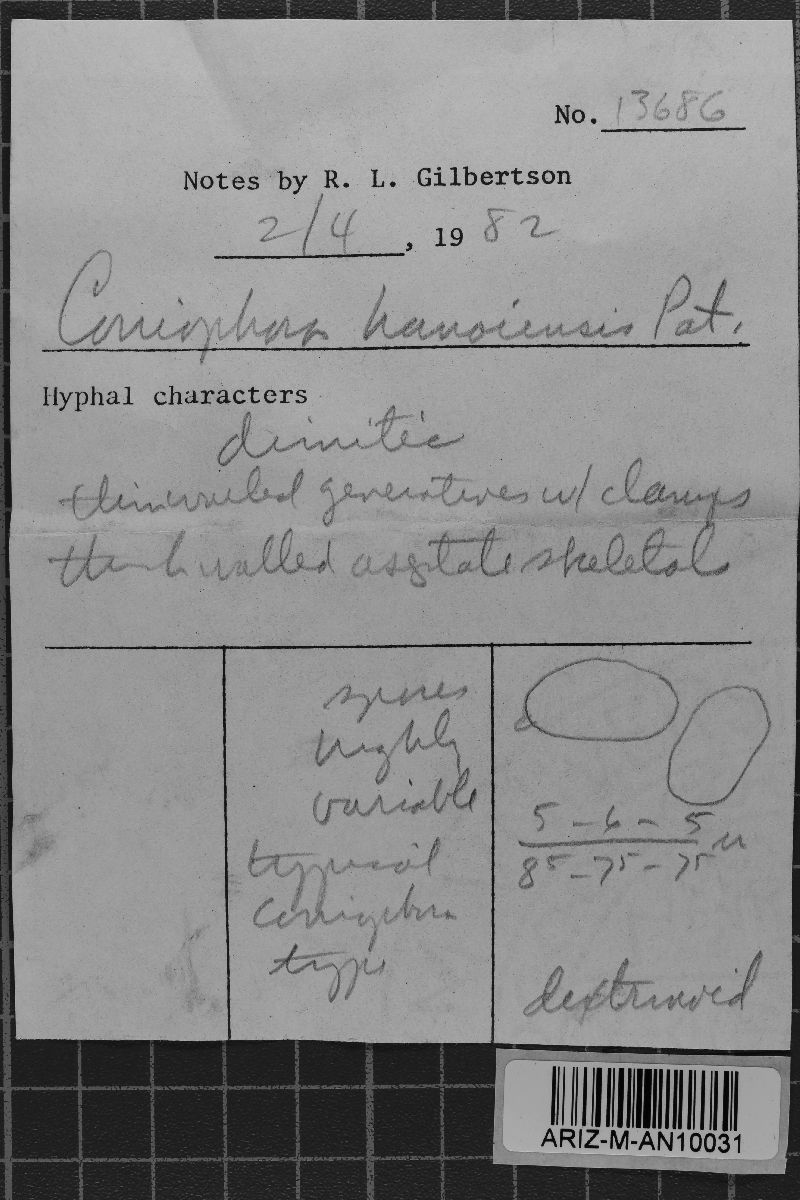 No. 13686
Notes by R. L. Gilbertson
2/4, 1982
Coniophora hanoiensis Pat.
Hyphal characters
dimitic
thinwalled generatives w/ clamps
walled skeletal
spores
highly
variable
typical
Coniophora
type
5 - 6 - 5
85 - 75 - 75 u
dextrinoid
ARIZ-M-AN10031